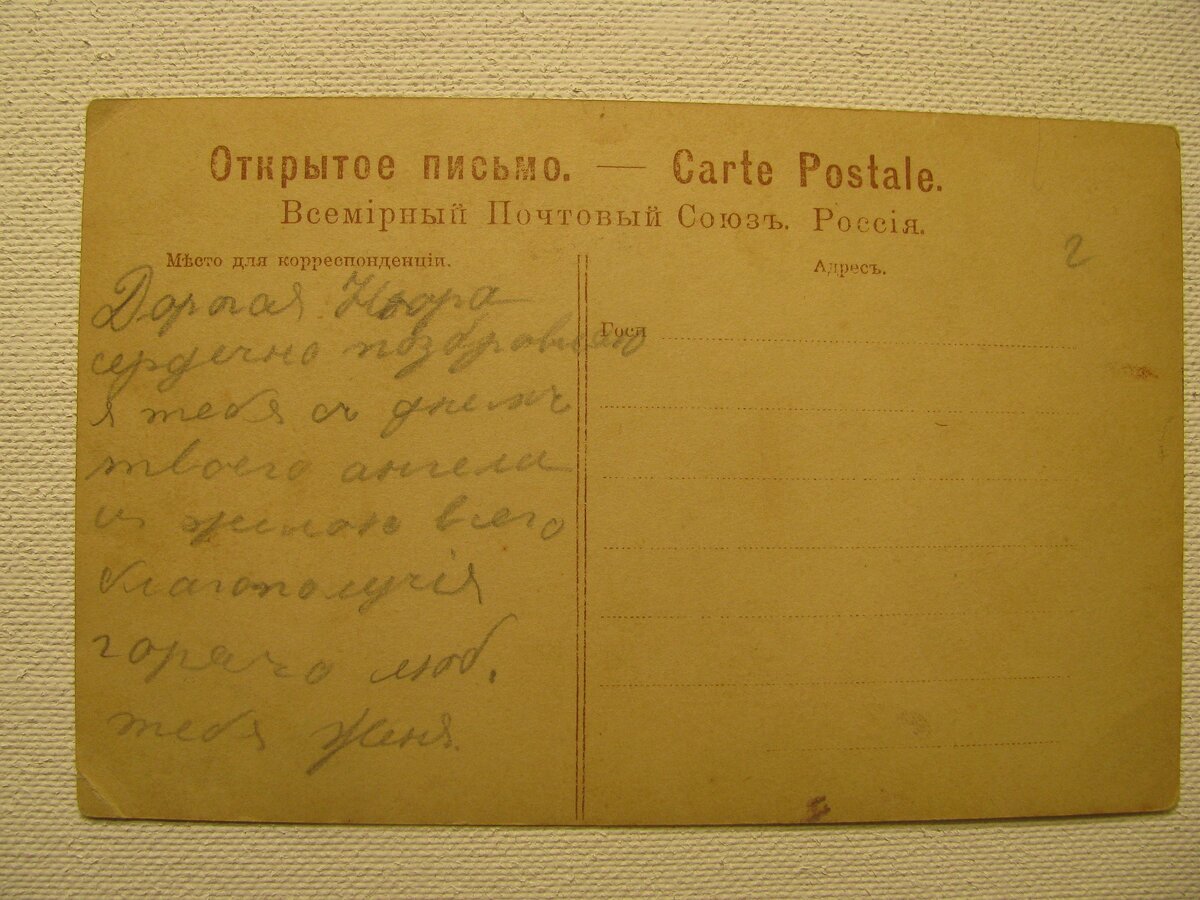 Открытое письмо. — Carte Postale.
Всемірный Почтовый Союзъ. Россія.
Мѣсто для корреспонденціи.
Адресъ.
2
Госп
Дорогая Нюра
сердечно поздровляю
я тебя съ днемъ
твоего ангела
и желаю всего
благополучія
горячо люб.
тебя Женя.